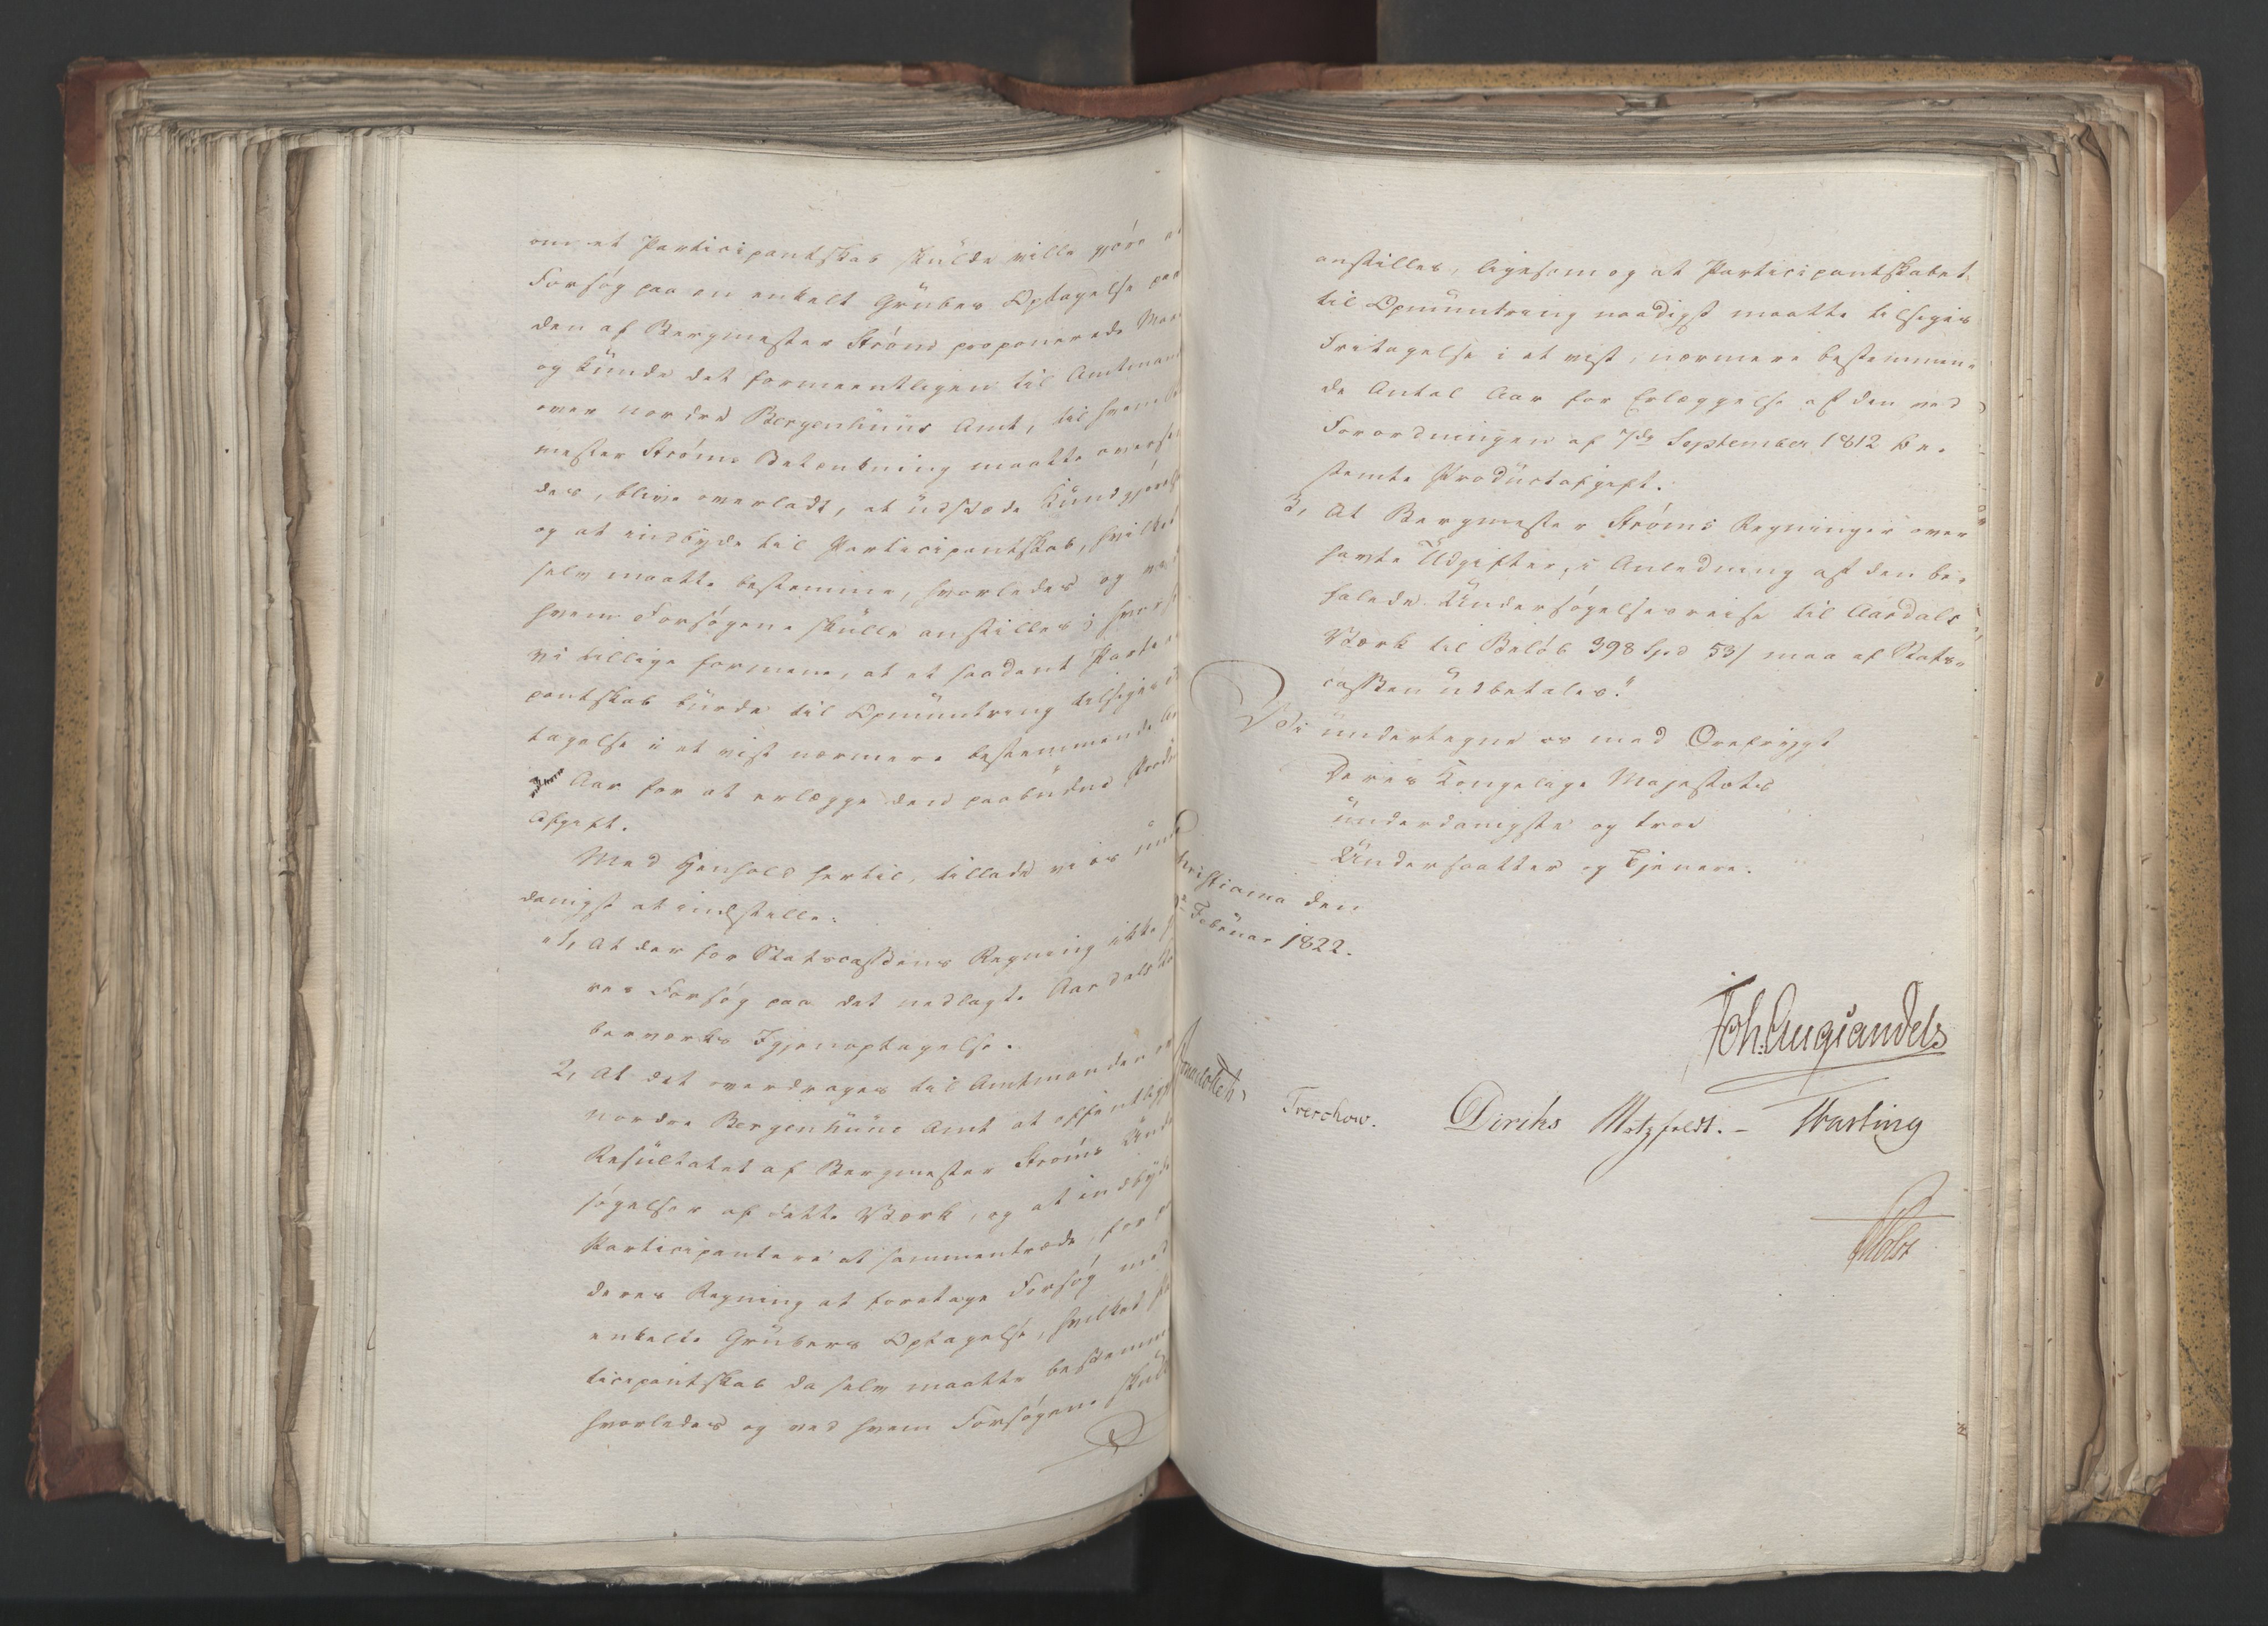 om et Participantskab skulde ville gjöre et
Forsög paa en enkelt Grubes Optagelse paa
den af Bergmester Ström proponerede Maa
og kunde det formeentligen til Amtmand
over nordre Bergenhuus Amt, til hvem
mester Ströms Betænkning maatte oversen
des, blive overladt, at udstæde Kundgjörelse
og at indbyde til Participantskab, hvilket
selv maatte bestemme, hvorledes og ved
hvem Forsögene skulle anstilles; hvorhos
vi tillige formene, at et saadant Partici
pantskab burde til Opmuntring tilsiges
tagelse i et vist nærmere bestemmende An
Aar for at erlægge den paabudne Produ
Afgift.
Med Henhold hertil, tillade vi os under
danigst at indstille:
"1, At der for Statscassens Regning ikke
res Forsög paa det nedlagte Aardals Ko
berværks Igjenoptagelse.
2, At det overdrages til Amtmanden o
nordre Bergenhuus Amt at offentligg
Resultatet af Bergmester Ströms Unde
sögelser af dette Værk, og at indbyde
Participantere at sammentræde, for
deres Regning at foretage Forsög med
enkelte Grubers Optagelse, hvilket
ticipantskab da selv maatte bestemme
hvorledes og ved hvem Forsögene skulde
anstilles, ligesom og at Participantskabet
til Opmuntring naadigst maatte tilsiges
Fritagelse i et vist, nærmere bestemmen,
de Antal Aar for Erlæggelse af den ved
Forordningen af 7de September 1812 be,
stemte Productafgift.
3, At Bergmester Ströms Regninger over
havte Udgifter, i Anledning af den be,
falede Undersögelsesreise til Aardals
Værk til Belöb 398 Spd 53 s maa af Stats,
cassen udbetales."
Vi undertegne os med Ærefrygt
Deres Kongelige Majestæts
underdanigste og troe
Undersaatter og Tjenere.
Christiania den
Februar 1822.
Joh. Aug. Sandels
Sommerfeldt
Treschow. Diriks Motzfeldt. Fasting
Holst